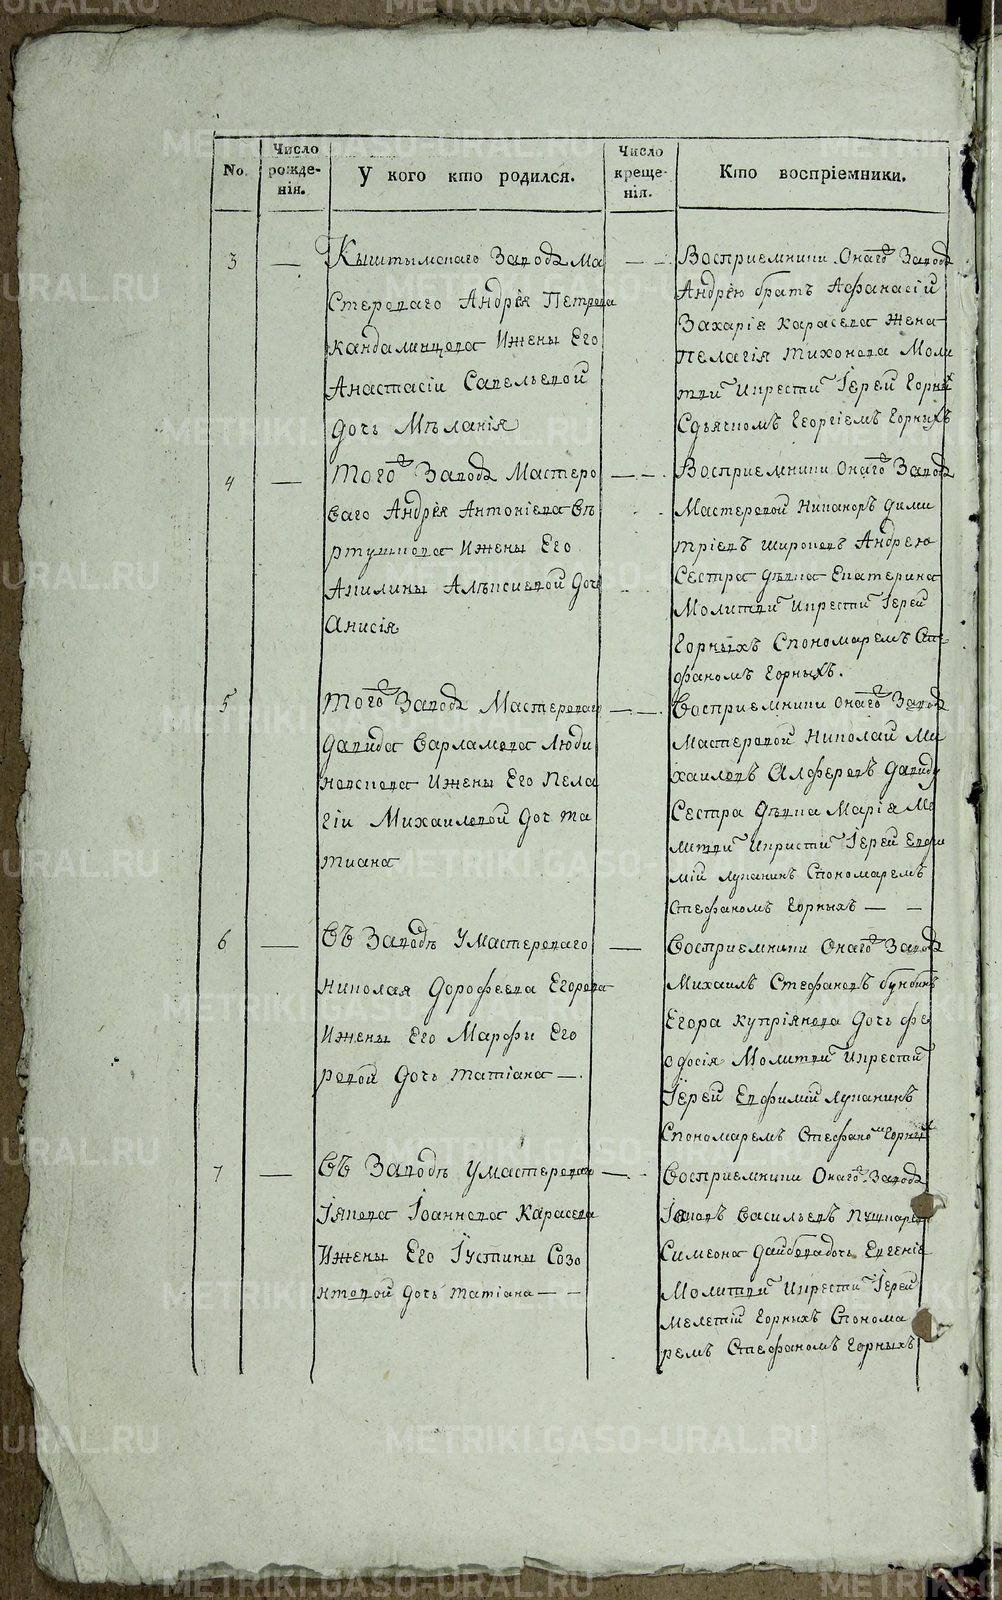 No.
Число рожде-нія.
У кого кто родился.
Число креще-нія.
Кто воспріемники.
3
Кыштымскаго Завода Ма
стероваго Андрея Петрова
Кандалинцова Ижены Его
Анастасіи Савельевой
дочь Мѣланія
Восприемники Онаго Завода
Андрею братъ Афанасіи
Захарія Карасева жена
Пелагія Тихонова Моли
тви Икрести Іерей Горных
Сдьячкомъ Георгіемъ Горныхъ
4
Того Завода Мастеро
ваго Андрея Антоніева
Ижены Его
Акилины Алѣксиевой Дочь
Анисія
Восприемники Онаго Завода
Мастеровой Никаноръ Дими
тріевъ Широковъ Андрею
Сестра дѣвка Екатерина
Молитви Икрести Іерей
Горныхъ Спономаремъ Сте
фаномъ Горныхъ.
5
Того Завода Мастероваго
Давида Варламова Люди
новскова Ижены Его Пела
гіи Михаиловой Доч Та
тиана
Восприемники Онаго Завода
Мастеровой Николай Ми
хаиловъ Алферовъ Давиду
Сестра Дѣвка Марія Мо
литви Икристи Іерей Евфи
мій Лупанинъ Спономаремъ
Стефаномъ Горныхъ
6
Въ Заводѣ Умастероваго
Николая Дорофеева Егорова
Ижены Его Марфы Его
ровой Дочь Татіана
Восприемники Онаго Завода
Михаилъ Стефановъ
Егора Купріянова Дочь Фе
одосія Молитви Икрести
Іерей Евфимій Лупанинъ
Спономаремъ Стефаном Горных
7
Въ Заводѣ Умастероваго
Іякова Іоаннова Карасева
Ижены Его Іустины Созо
нтовой Дочь Татіана
Восприемники Онаго Завода
Васильевъ
Симеона дочь Евгенія
Молитви Икрести Іерей
Мелетій Горныхъ Спонома
ремъ Стефаномъ Горныхъ
METRIKI.GASO-URAL.RU